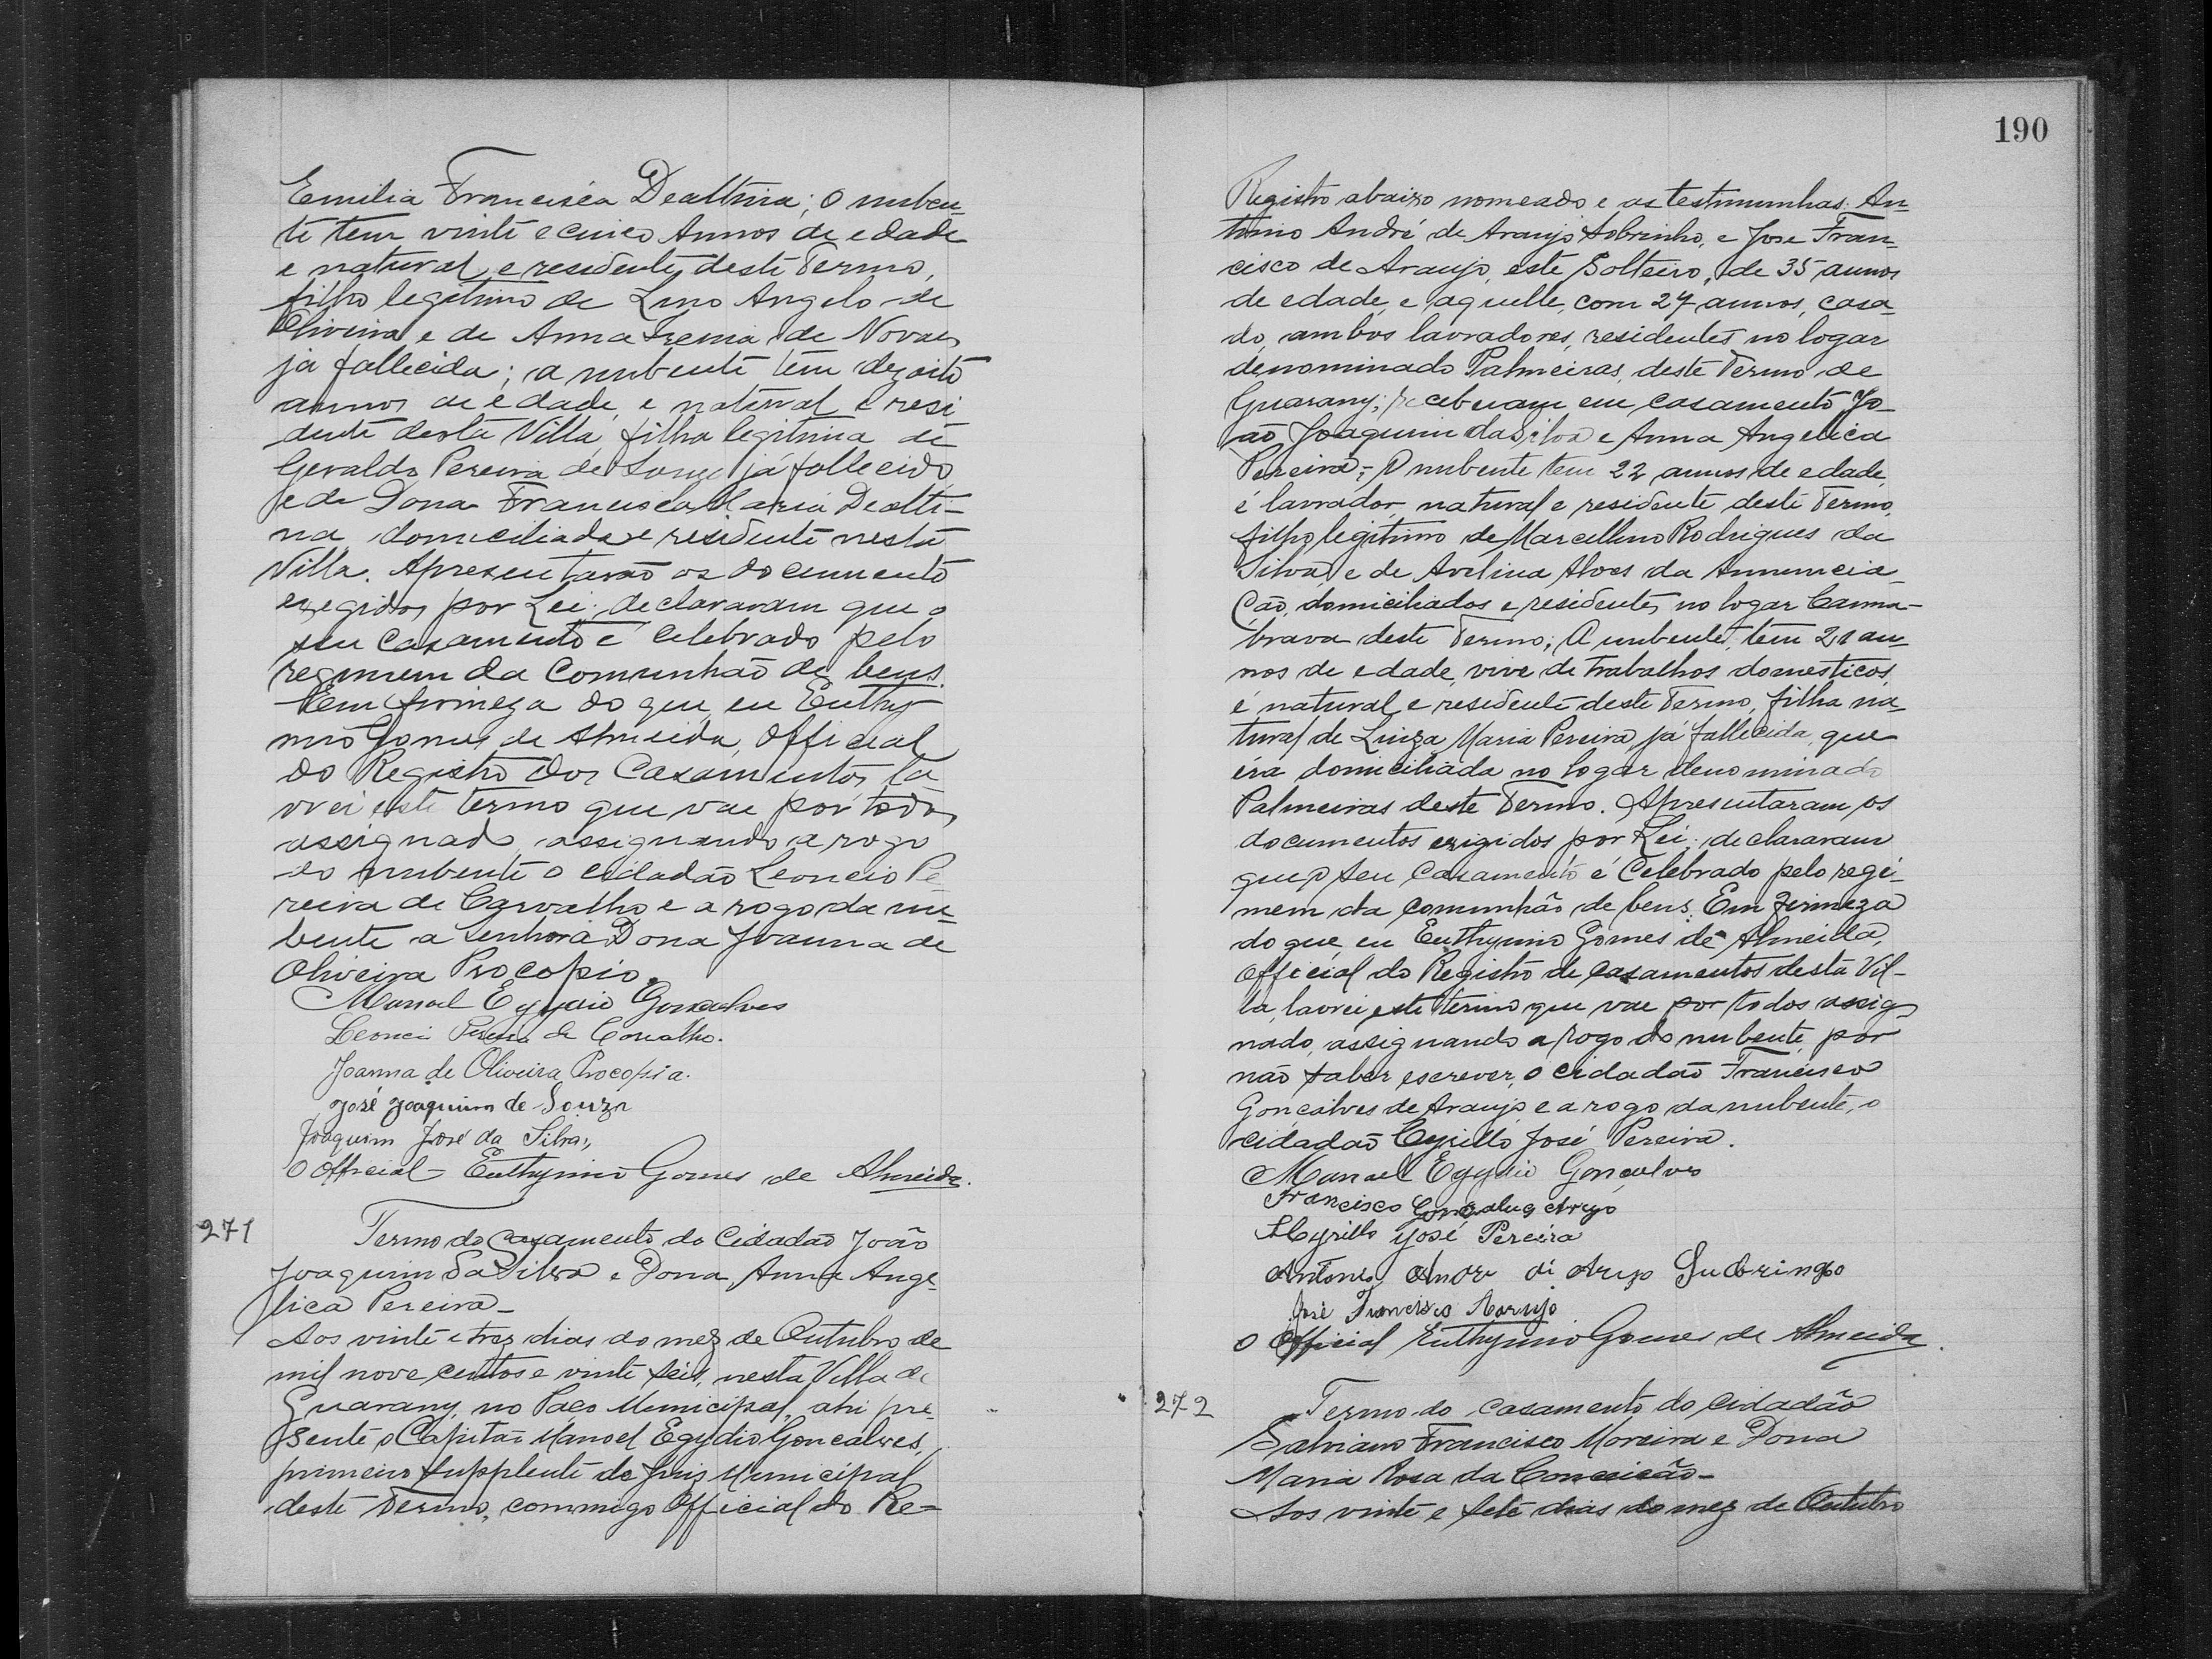 Emilia Francisca Dealtina; O nuben-
te tem vinte e cinco Annos de edade
e natural e residente deste Termo,
filho legitimo de Lino Angelo de
Oliveira e de Anna Irenia de Novaes
já fallecida; a nubente tem dezoito
annos de edade, e natural e resi
dente desta Villa, filha legitima de
Geraldo Pereira de já fallecido
e de Dona Francisca Maria Dealti-
na domiciliada e residente nesta
Villa. Apresentarão os documento
exegidos por Lei; declararam que o
seu casamento é celebrado pelo
regimem da Comunhão de bens.
Em firmeza do que, eu Euthy-
mio Gomes de Almeida, Official
do Registro dos Casamentos, la
vrei este termo que vae por todos
assignado, assignando a rogo
do nubente o cidadão Leoncio Pe
reira de Carvalho e a rogo da nu-
bente a Senhora Dona Joanna de
Oliveira Procopio.
Manoel Egydio Gonçalves
Leonci Pereira de Carvalho.
Joanna de Oliveira Procopia.
José Joaquim de Souza
Joaquim José da Silva,
O Official - Euthymio Gomes de Almeida.
271 Termo do Casamento do Cidadão João
Joaquim da Silva e Dona Anna Ange-
lica Pereira -
Aos vinte e trez dias do mez de Outubro de
mil nove centos e vinte seis, nesta Villa de
Guarany, no Paço Municipal, ahi pre-
sente o Capitão Manoel Egydio Goncalves,
primeiro supplente do Juis Municipal
deste Termo, commigo Official do Re=
190
Registro abaixo nomeado e as testimunhas: An-
tonio André de Araujo Sobrinho, e Jose Fran-
cisco de Araujo, este Solteiro, de 35 annos
de edade, e aquelle, com 27 annos, casa-
do, ambos lavradores, residentes no logar
denominado Palmeiras, deste Termo de
Guarany; receberam em casamento Jo-
ão Joaquim da Silva e Anna Angelica
Pereira; O nubente tem 22 annos de edade,
é lavrador, natural e residente deste Termo,
filho legitimo de Marcellino Rodrigues da
Silva, e de Avelina Alves da Annuncia-
ção, domiciliados e residentes no logar Canna-
brava deste Termo; A nubente, tem 21 an-
nos de edade, vive de trabalhos domesticos,
é natural e residente deste Termo, filha na-
tural de Luiza Maria Pereira, já fallecida, que
éra domiciliada no logar denominado
Palmeiras deste Termo. Apresentaram os
documentos exigidos por Lei; declararam
que o seu casamento é Celebrado pelo regi-
mem da comunhão de bens. Em firmeza
do que, eu Euthymio Gomes de Almeida,
Official do Registro de casamentos desta Vil-
la, lavrei este termo que vae por todos assig-
nado, assignando a rogo do nubente, por
não saber escrever, o cidadão Francisco
Gonçalves de Araujo e a rogo da nubente, o
cidadão Cyrillo José Pereira.
Manoel Egydio Gonçalves
Francisco Gonzalves Arujo
Cyrillo José Pereira
Antonio Andre di Arujo Subringo
José Francisco Aarujo
O Official Euthymio Gomes de Almeida.
272 Termo do casamento do cidadão
Salviano Francisco Moreira e Dona
Maria Rosa da Conceicão -
Aos vinte e sete dias do mez de Outubro